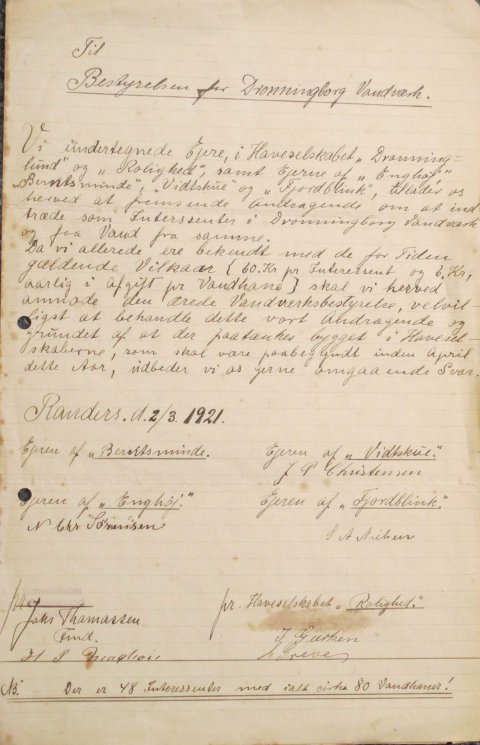 Til
Bestyrelsen for Dronningborg Vandværk.
Vi undertegnede Ejere, i Haveselskabet "Dronning-
lund" og "Rolighed", samt Ejerne af "Enghøj"
"Berritsminde", "Vidtskue" og "Fjordblink", tillader os
herved at fremsende Andragende om at ind-
træde som Interssenter i Dronningborg Vandværk
og faa Vand fra samme.
Da vi allerede ere bekendt med de for Tiden
gældende Vilkaar { 60 Kr pr Interessent og 6 Kr,
aarlig i Afgift pr Vandhane } skal vi herved
anmode den ærede Vandværksbestyrelse, velvil-
ligst at behandle dette vort Andragende og
grundet af at der paatænkes bygget i Havesel-
skaberne, som skal være paabegyndt inden April
dette Aar, udbeder vi os gerne omgaaende Svar.
Randers. d. 2/3. 1921.
Ejeren af "Berritsminde.
Ejeren af "Vidtskue."
J P Christensen
Ejeren af "Enghöj."
N Chr Sörensen
Ejeren af "Fjordblink."
S A Nielsen
pr.
Johs Thomassen
Fmd.
H P
pr. Haveselskabet "Rolighed."
J
Greve
NB. Der er 48 Interessenter med ialt cirka 80 Vandhaner!